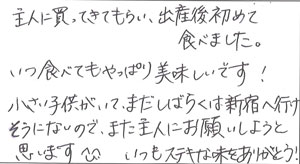 主人に買ってきてもらい、出産後初めて
食べました。
いつ食べてもやっぱり美味しいです！
小さい子供がいて、まだしばらくは新宿へ行け
そうにないので、また主人にお願いしようと
思います いつもステキな味をありがとう！